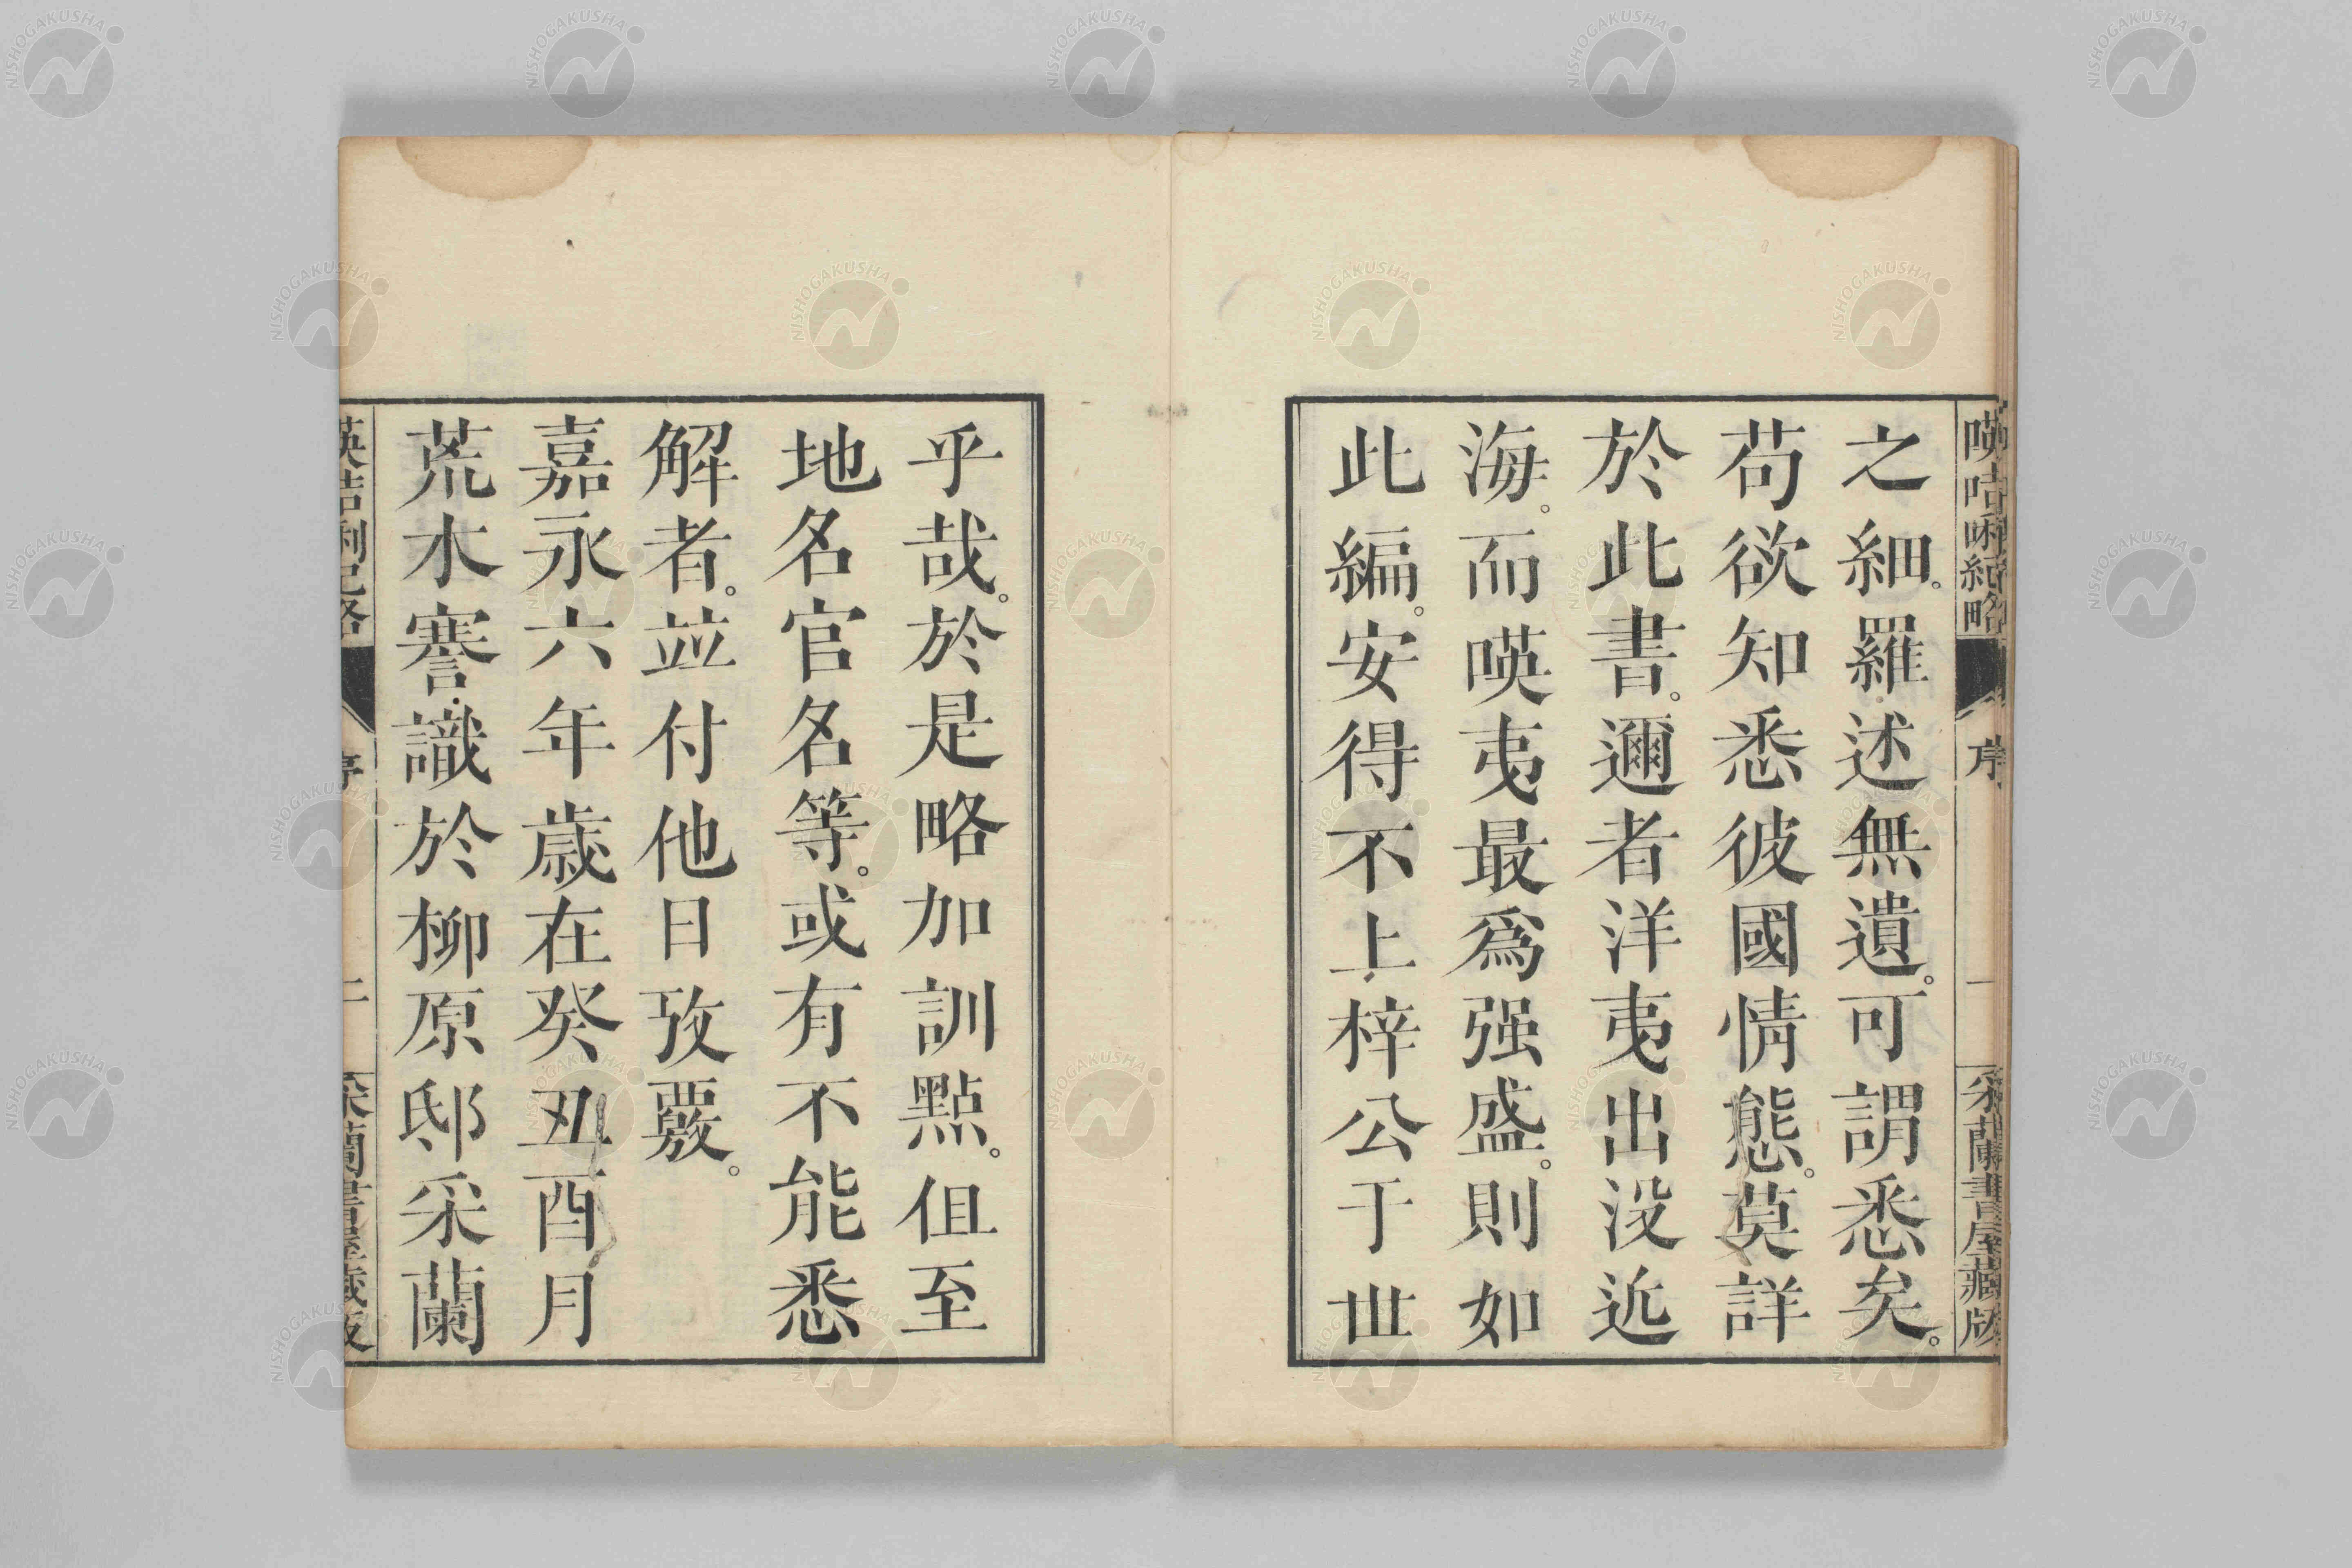 暎咭唎紀略
序
一
采蘭書屋藏版
之細。羅述無遺。可謂悉矣。
苟欲知悉彼國情態。莫詳
於此書。邇者洋夷出没近
海。而暎夷最爲强盛。則如
此編。安得不上梓公于世
乎哉。於是略加訓點。但至
地名官名等。或有不能悉
解者。並付他日攷覈。
嘉永六年歲在癸丑酉月
荒木謇識於柳原邸采蘭
序
二
NISHOGAKUSHA